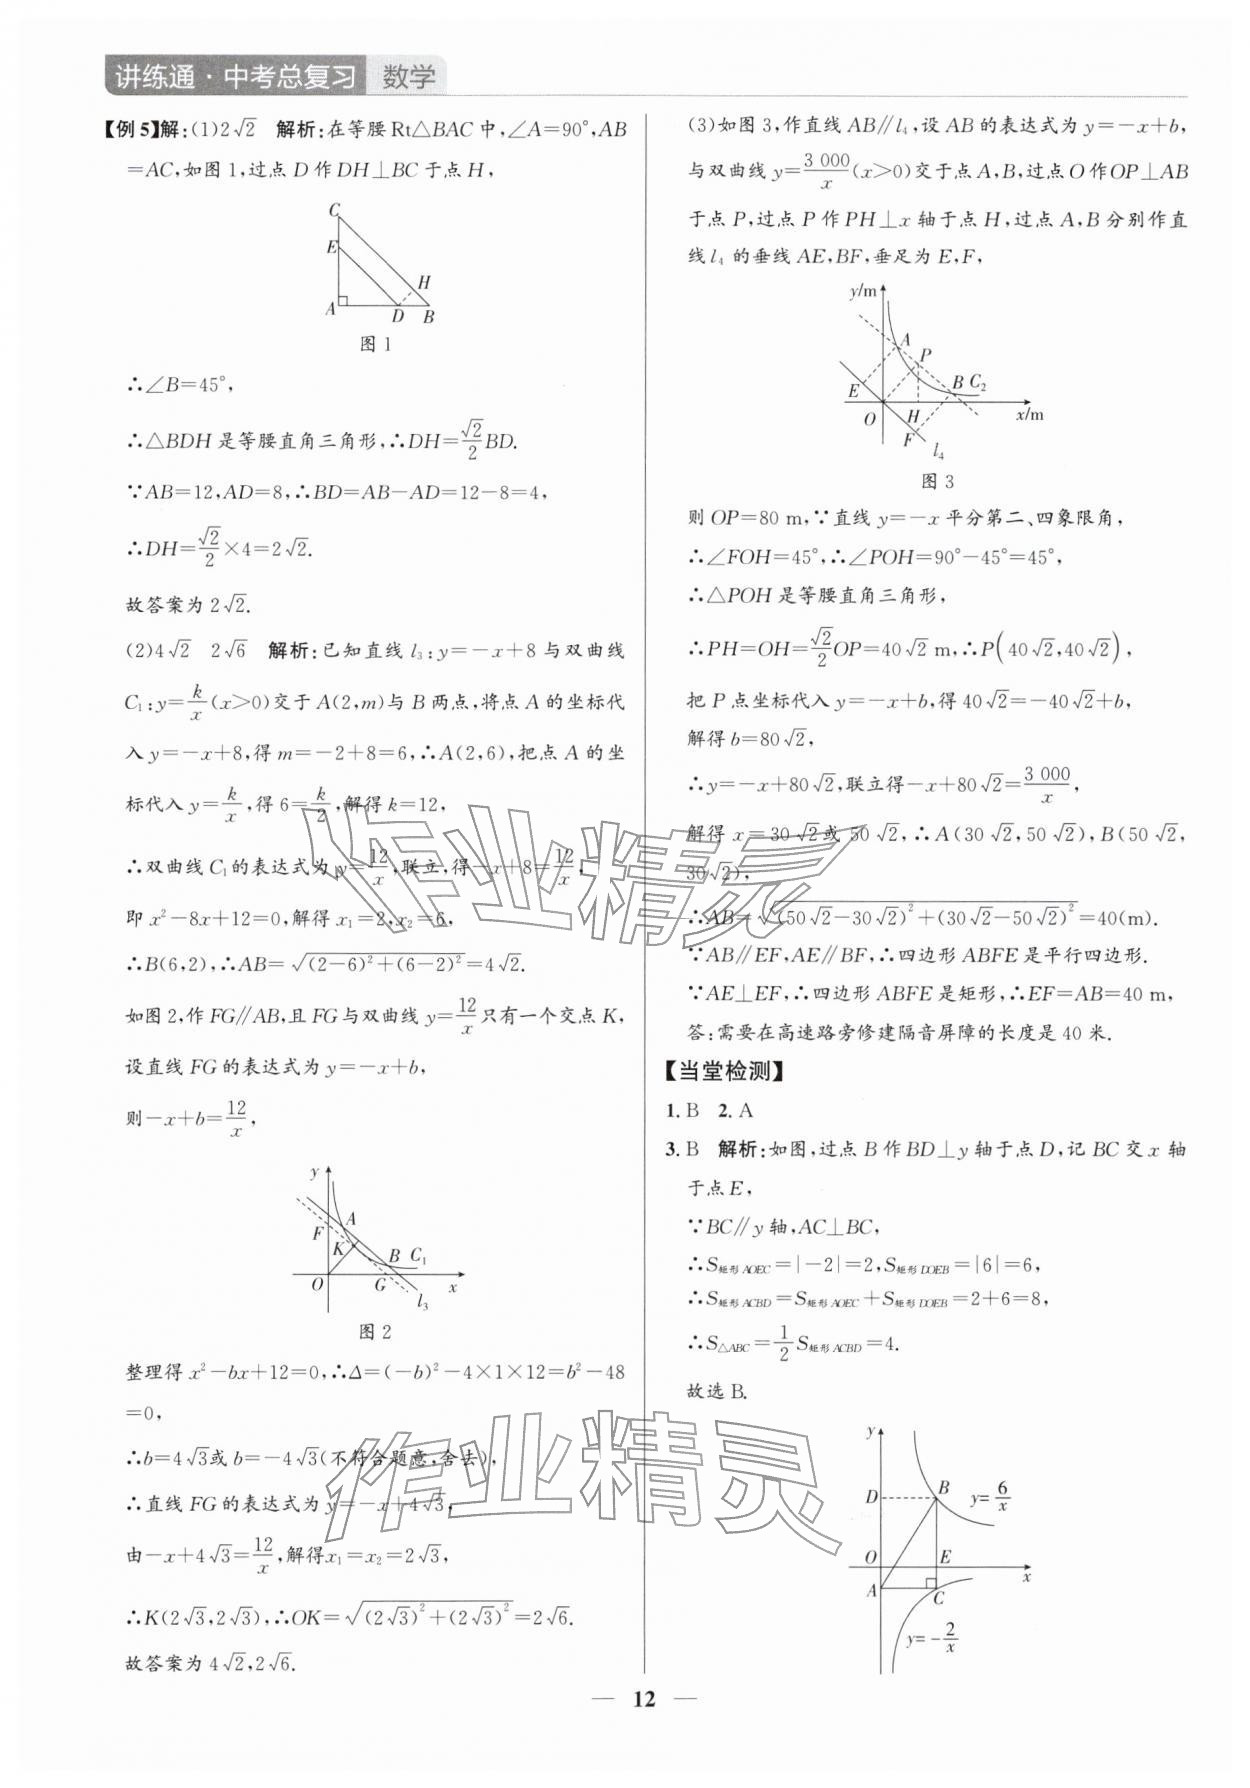 讲练通·中考总复习 数学
【例5】解:(1)2√2 解析:在等腰Rt△BAC中,∠A=90°,AB
=AC,如图1,过点D作DH⊥BC于点H,
C
E
H
A D B
图1
∴∠B=45°,
∴△BDH是等腰直角三角形,∴DH=√2/2 BD.
∵AB=12,AD=8,∴BD=AB-AD=12-8=4,
∴DH=√2/2×4=2√2.
故答案为2√2.
(2)4√2 2√6 解析:已知直线l₃:y=-x+8与双曲线
C₁:y=k/x(x>0)交于A(2,m)与B两点,将点A的坐标代
入y=-x+8,得m=-2+8=6,∴A(2,6),把点A的坐
标代入y=k/x,得6=k/2,解得k=12,
∴双曲线C₁的表达式为y=12/x,联立,得-x+8=12/x,
即x²-8x+12=0,解得x₁=2,x₂=6,
∴B(6,2),∴AB=√((2-6)²+(6-2)²)=4√2.
如图2,作FG∥AB,且FG与双曲线y=12/x只有一个交点K,
设直线FG的表达式为y=-x+b,
则-x+b=12/x,
y
A
F
K B C₁
O G x
l₃
图2
整理得x²-bx+12=0,∴Δ=(-b)²-4×1×12=b²-48
=0,
∴b=4√3或b=-4√3(不符合题意,舍去),
∴直线FG的表达式为y=-x+4√3,
由-x+4√3=12/x,解得x₁=x₂=2√3,
∴K(2√3,2√3),∴OK=√((2√3)²+(2√3)²)=2√6.
故答案为4√2,2√6.
(3)如图3,作直线AB∥l₄,设AB的表达式为y=-x+b,
与双曲线y=3 000/x(x>0)交于点A,B,过点O作OP⊥AB
于点P,过点P作PH⊥x轴于点H,过点A,B分别作直
线l₄的垂线AE,BF,垂足为E,F,
y/m
A
P
E B C₂
O H x/m
F
l₄
图3
则OP=80 m,∵直线y=-x平分第二、四象限角,
∴∠FOH=45°,∴∠POH=90°-45°=45°,
∴△POH是等腰直角三角形,
∴PH=OH=√2/2 OP=40√2 m,∴P(40√2,40√2),
把P点坐标代入y=-x+b,得40√2=-40√2+b,
解得b=80√2,
∴y=-x+80√2,联立得-x+80√2=3 000/x,
解得x=30√2或50√2,∴A(30√2,50√2),B(50√2,
30√2),
∴AB=√((50√2-30√2)²+(30√2-50√2)²)=40(m).
∵AB∥EF,AE∥BF,∴四边形ABFE是平行四边形.
∵AE⊥EF,∴四边形ABFE是矩形,∴EF=AB=40 m,
答:需要在高速路旁修建隔音屏障的长度是40米.
【当堂检测】
1.B 2.A
3.B 解析:如图,过点B作BD⊥y轴于点D,记BC交x轴
于点E,
∵BC∥y轴,AC⊥BC,
∴S矩形AOEC=|-2|=2,S矩形DOEB=|6|=6,
∴S矩形ACBD=S矩形AOEC+S矩形DOEB=2+6=8,
∴S△ABC=1/2 S矩形ACBD=4.
故选B.
y
D B y=6/x
O E x
A C
y=-2/x
作业精灵
作业精灵
12